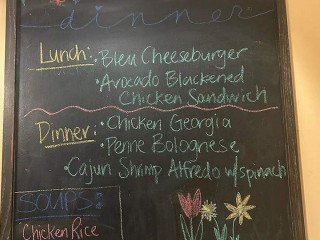 dinner
Lunch: • Bleu Cheeseburger
• Avocado Blackened
Chicken Sandwich
Dinner: • Chicken Georgia
• Penne Bolognese
• Cajun Shrimp Alfredo w/spinach
SOUPS:
Chicken Rice